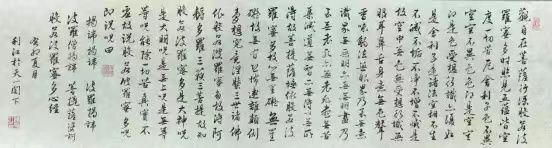 觀自在菩薩行深般若波
羅蜜多時照見五蘊皆空
度一切苦厄舍利子色不異
空空不異色色即是空空
即是色受想行識亦復如
是舍利子是諸法空相不生
不滅不垢不淨不增不減是
故空中無色無受想行識無
眼耳鼻舌身意無色聲
香味觸法無眼界乃至無意
識界無無明亦無無明盡乃
至無老死亦無老死盡無苦
集滅道無智亦無得以無所
得故菩提薩埵依般若波
羅蜜多故心無罣礙無罣
礙故無有恐怖遠離顛倒
夢想究竟涅槃三世諸佛
依般若波羅蜜多故得阿
耨多羅三藐三菩提故知
般若波羅蜜多是大神咒
是大明咒是無上咒是無等
等咒能除一切苦真實不
虛故說般若波羅蜜多咒
即說咒曰
揭諦揭諦 波羅揭諦
波羅僧揭諦 菩提薩婆訶
般若波羅蜜多心經
夏月